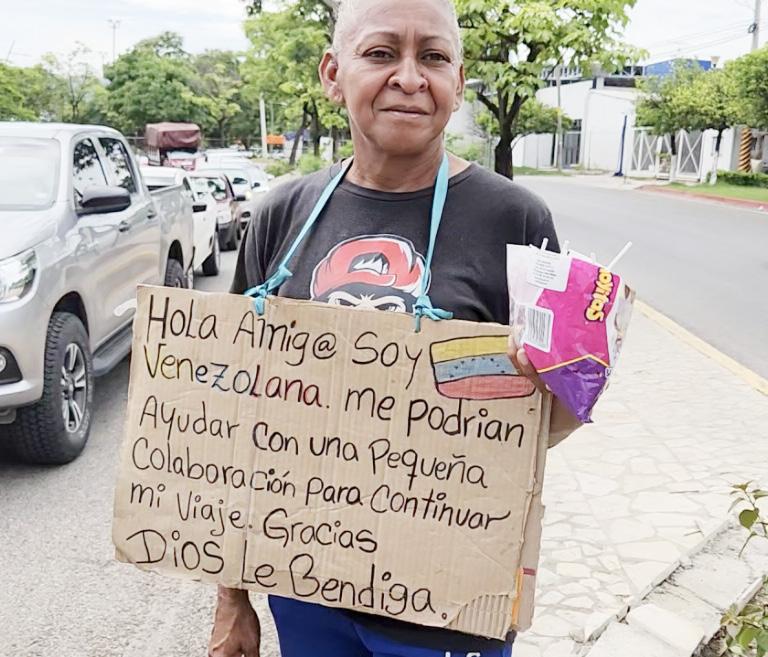 Hola Amig@ Soy
Venezolana. me podrian
Ayudar con una Pequeña
Colaboración Para Continuar
mi Viaje. Gracias
Dios Le Bendiga.